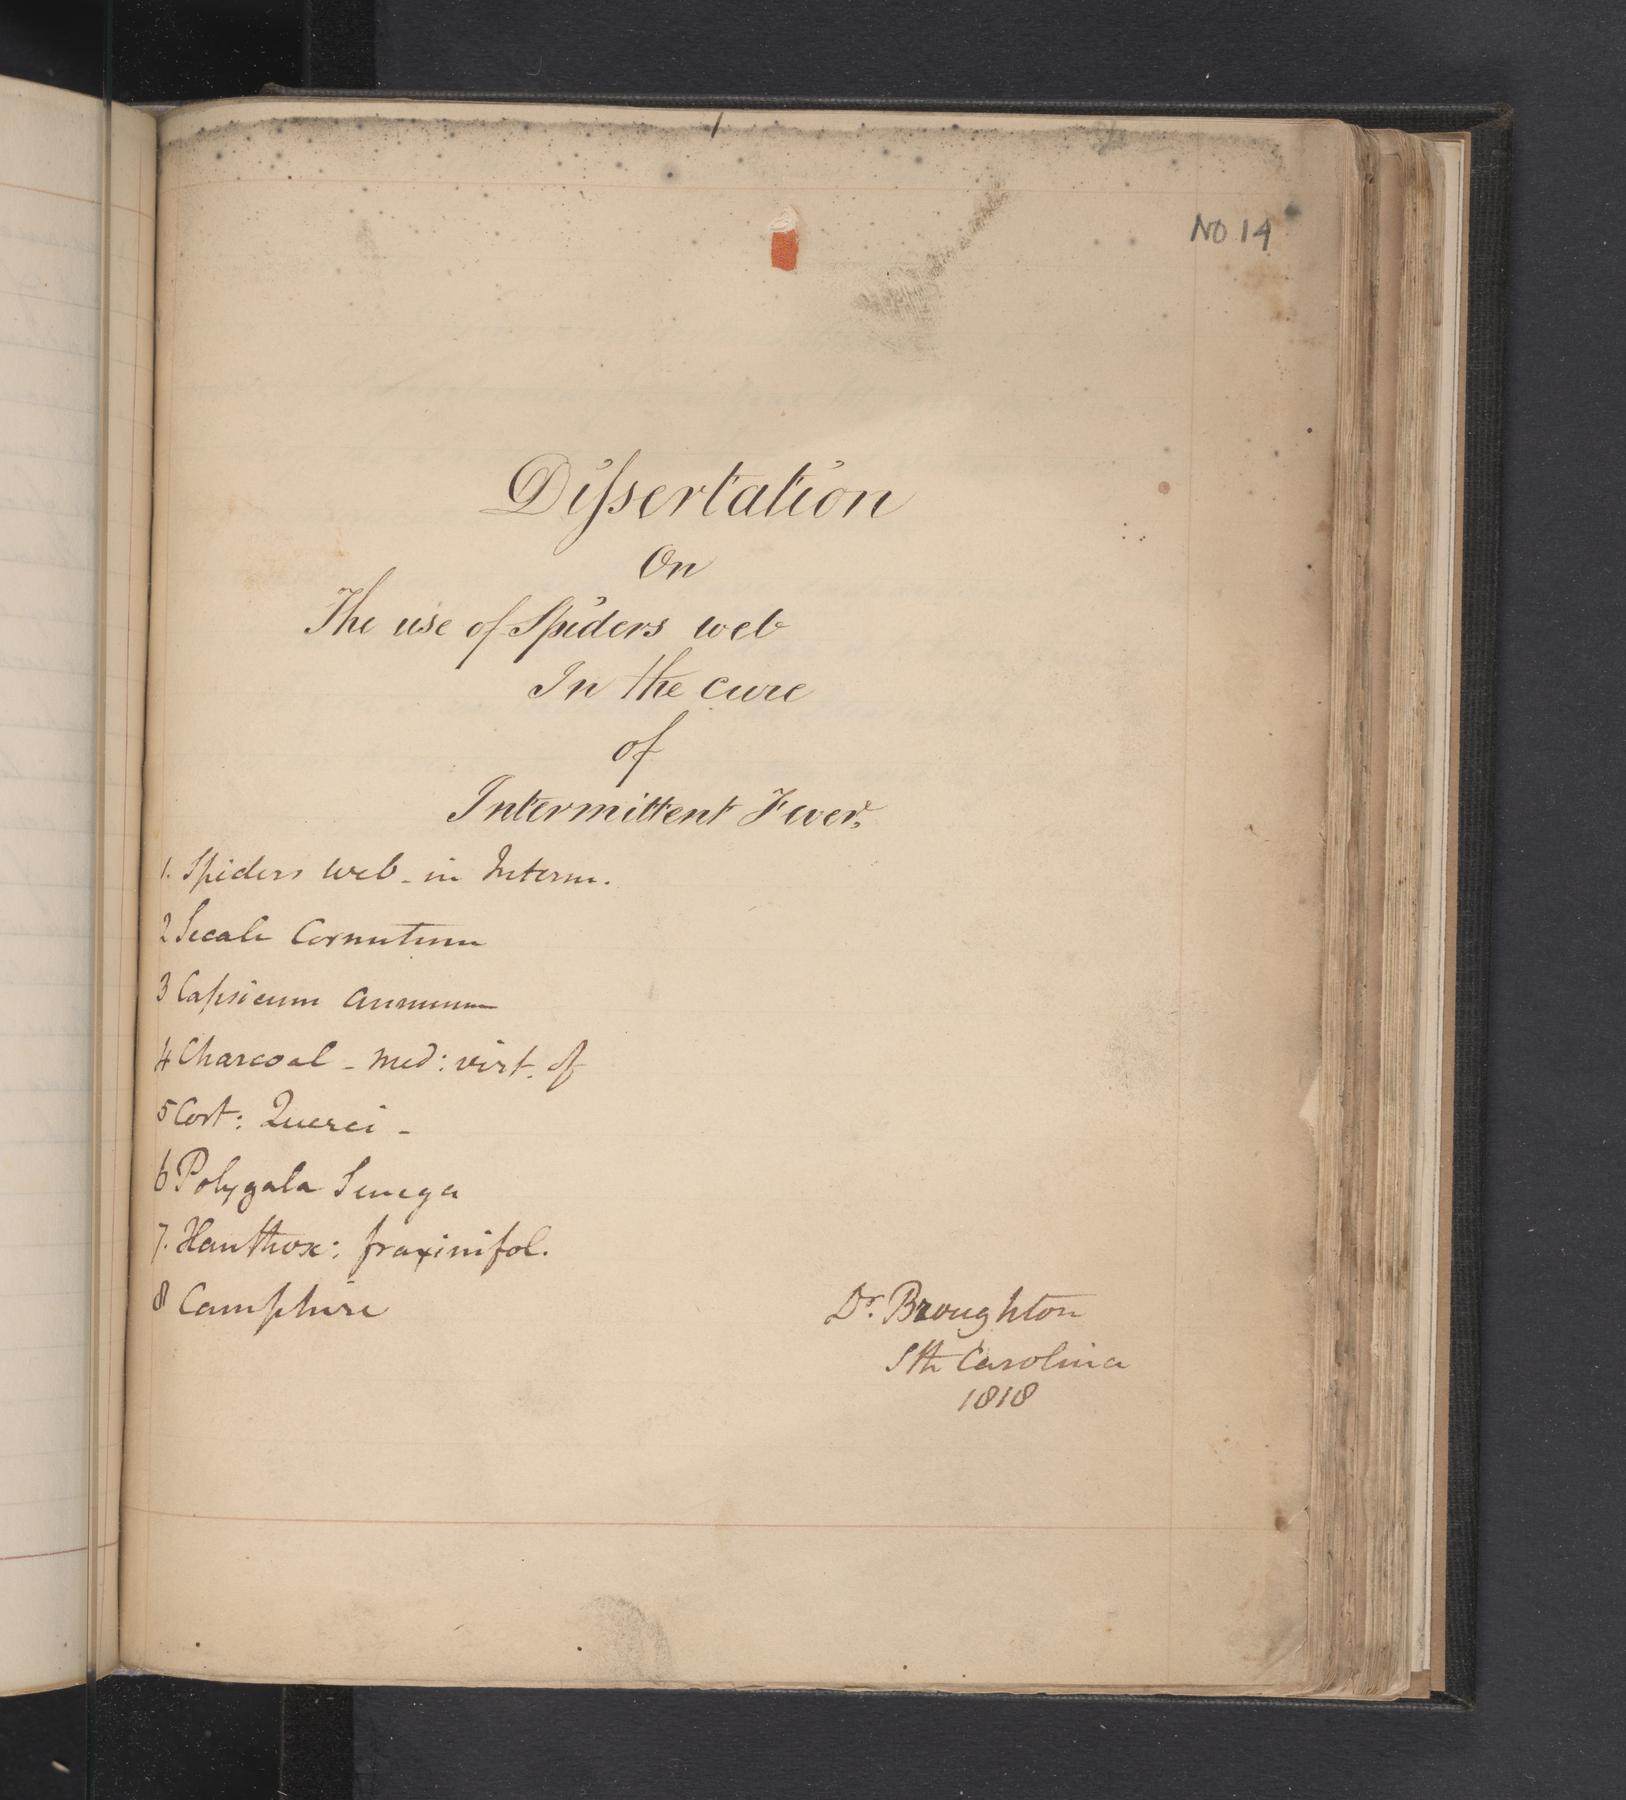 No 14
Dissertation
On
The use of Spiders web
In the cure
of
Intermittent Fever,
1. Spiders web - in Interm.
2 Secale Cornutum
3 Capsicum Annuum
4 Charcoal - Med: virt. of
5 Cort: Querci -
6 Polygala Senega
7. Xanthox: fraxinifol.
8 Camphire
Dr. Broughton
Sth Carolina
1818